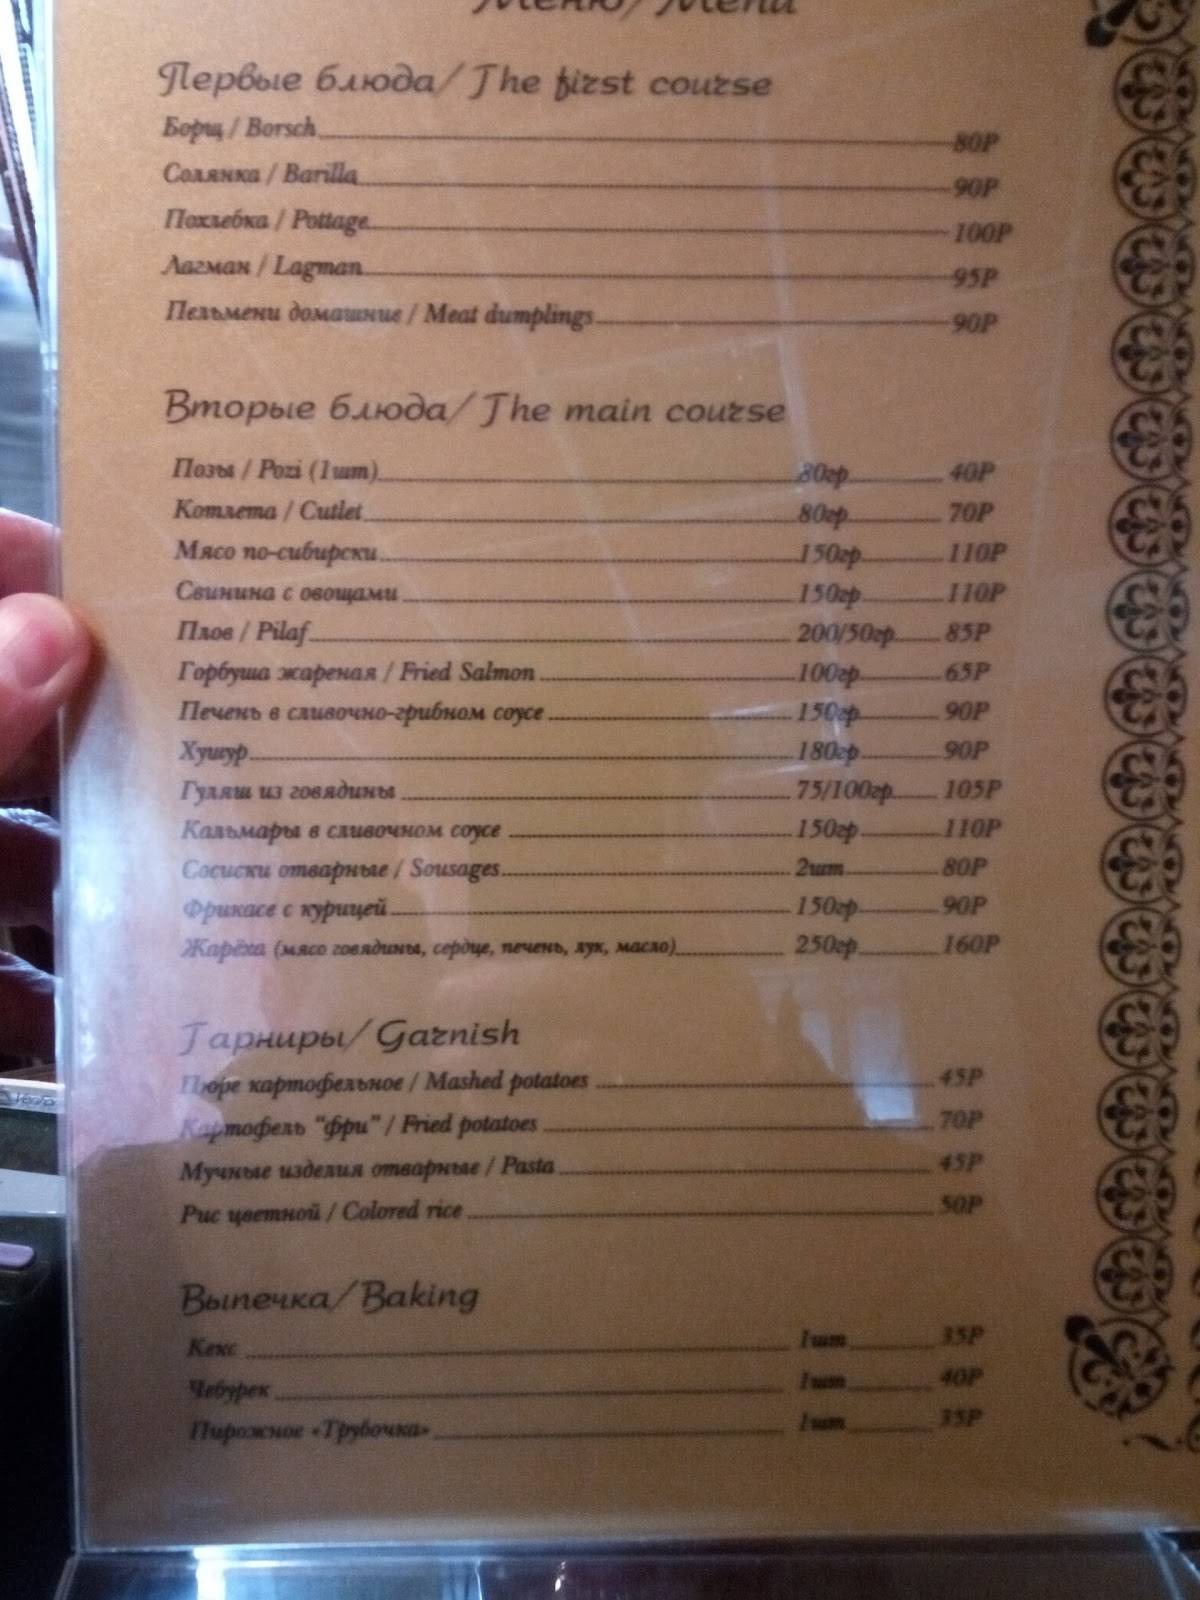 Меню/Menu
Первые блюда/The first course
Борщ / Borsch 80Р
Солянка / Barilla 90Р
Похлебка / Pottage 100Р
Лагман / Lagman 95Р
Пельмени домашние / Meat dumplings 90Р
Вторые блюда/The main course
Позы / Pozi (1шт) 80гр 40Р
Котлета / Cutlet 80гр 70Р
Мясо по-сибирски 150гр 110Р
Свинина с овощами 150гр 110Р
Плов / Pilaf 200/50гр 85Р
Горбуша жареная / Fried Salmon 100гр 65Р
Печень в сливочно-грибном соусе 150гр 90Р
Хушур 180гр 90Р
Гуляш из говядины 75/100гр 105Р
Кальмары в сливочном соусе 150гр 110Р
Сосиски отварные / Sousages 2шт 80Р
Фрикасе с курицей 150гр 90Р
Жарёха (мясо говядины, сердце, печень, лук, масло) 250гр 160Р
Гарниры/Garnish
Пюре картофельное / Mashed potatoes 45Р
Картофель "фри" / Fried potatoes 70Р
Мучные изделия отварные / Pasta 45Р
Рис цветной / Colored rice 50Р
Выпечка/Baking
Кекс 1шт 35Р
Чебурек 1шт 40Р
Пирожное «Трубочка» 1шт 35Р